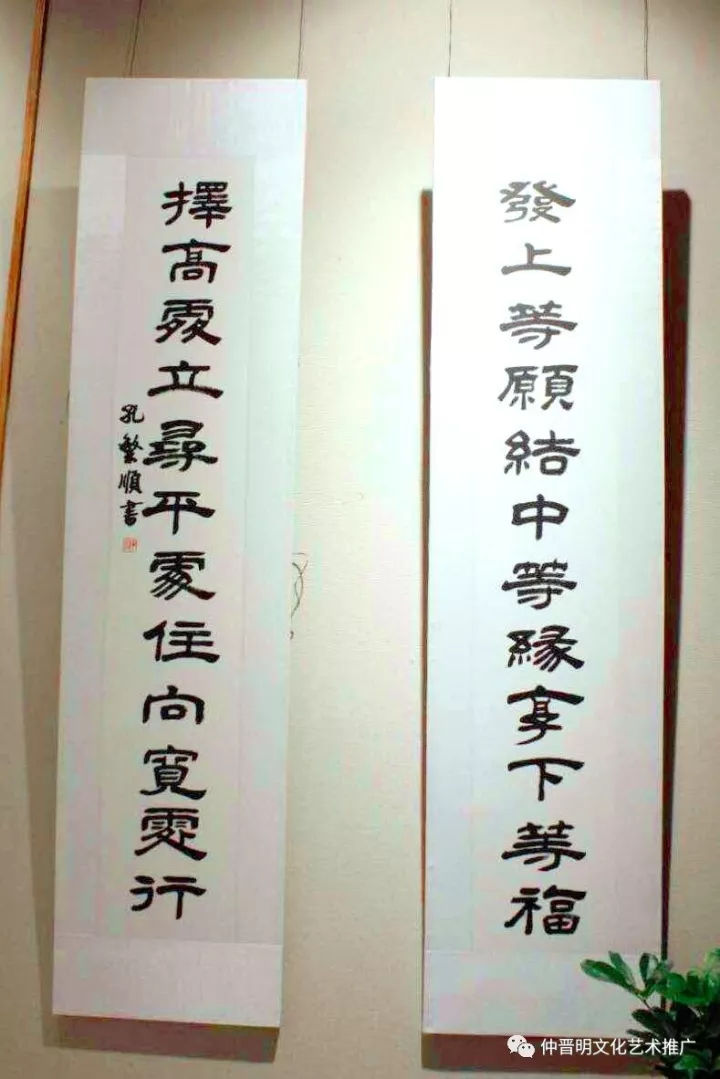 發上等願結中等緣享下等福
擇高處立尋平處住向寬處行
孔繁順書
仲晋明文化艺术推广